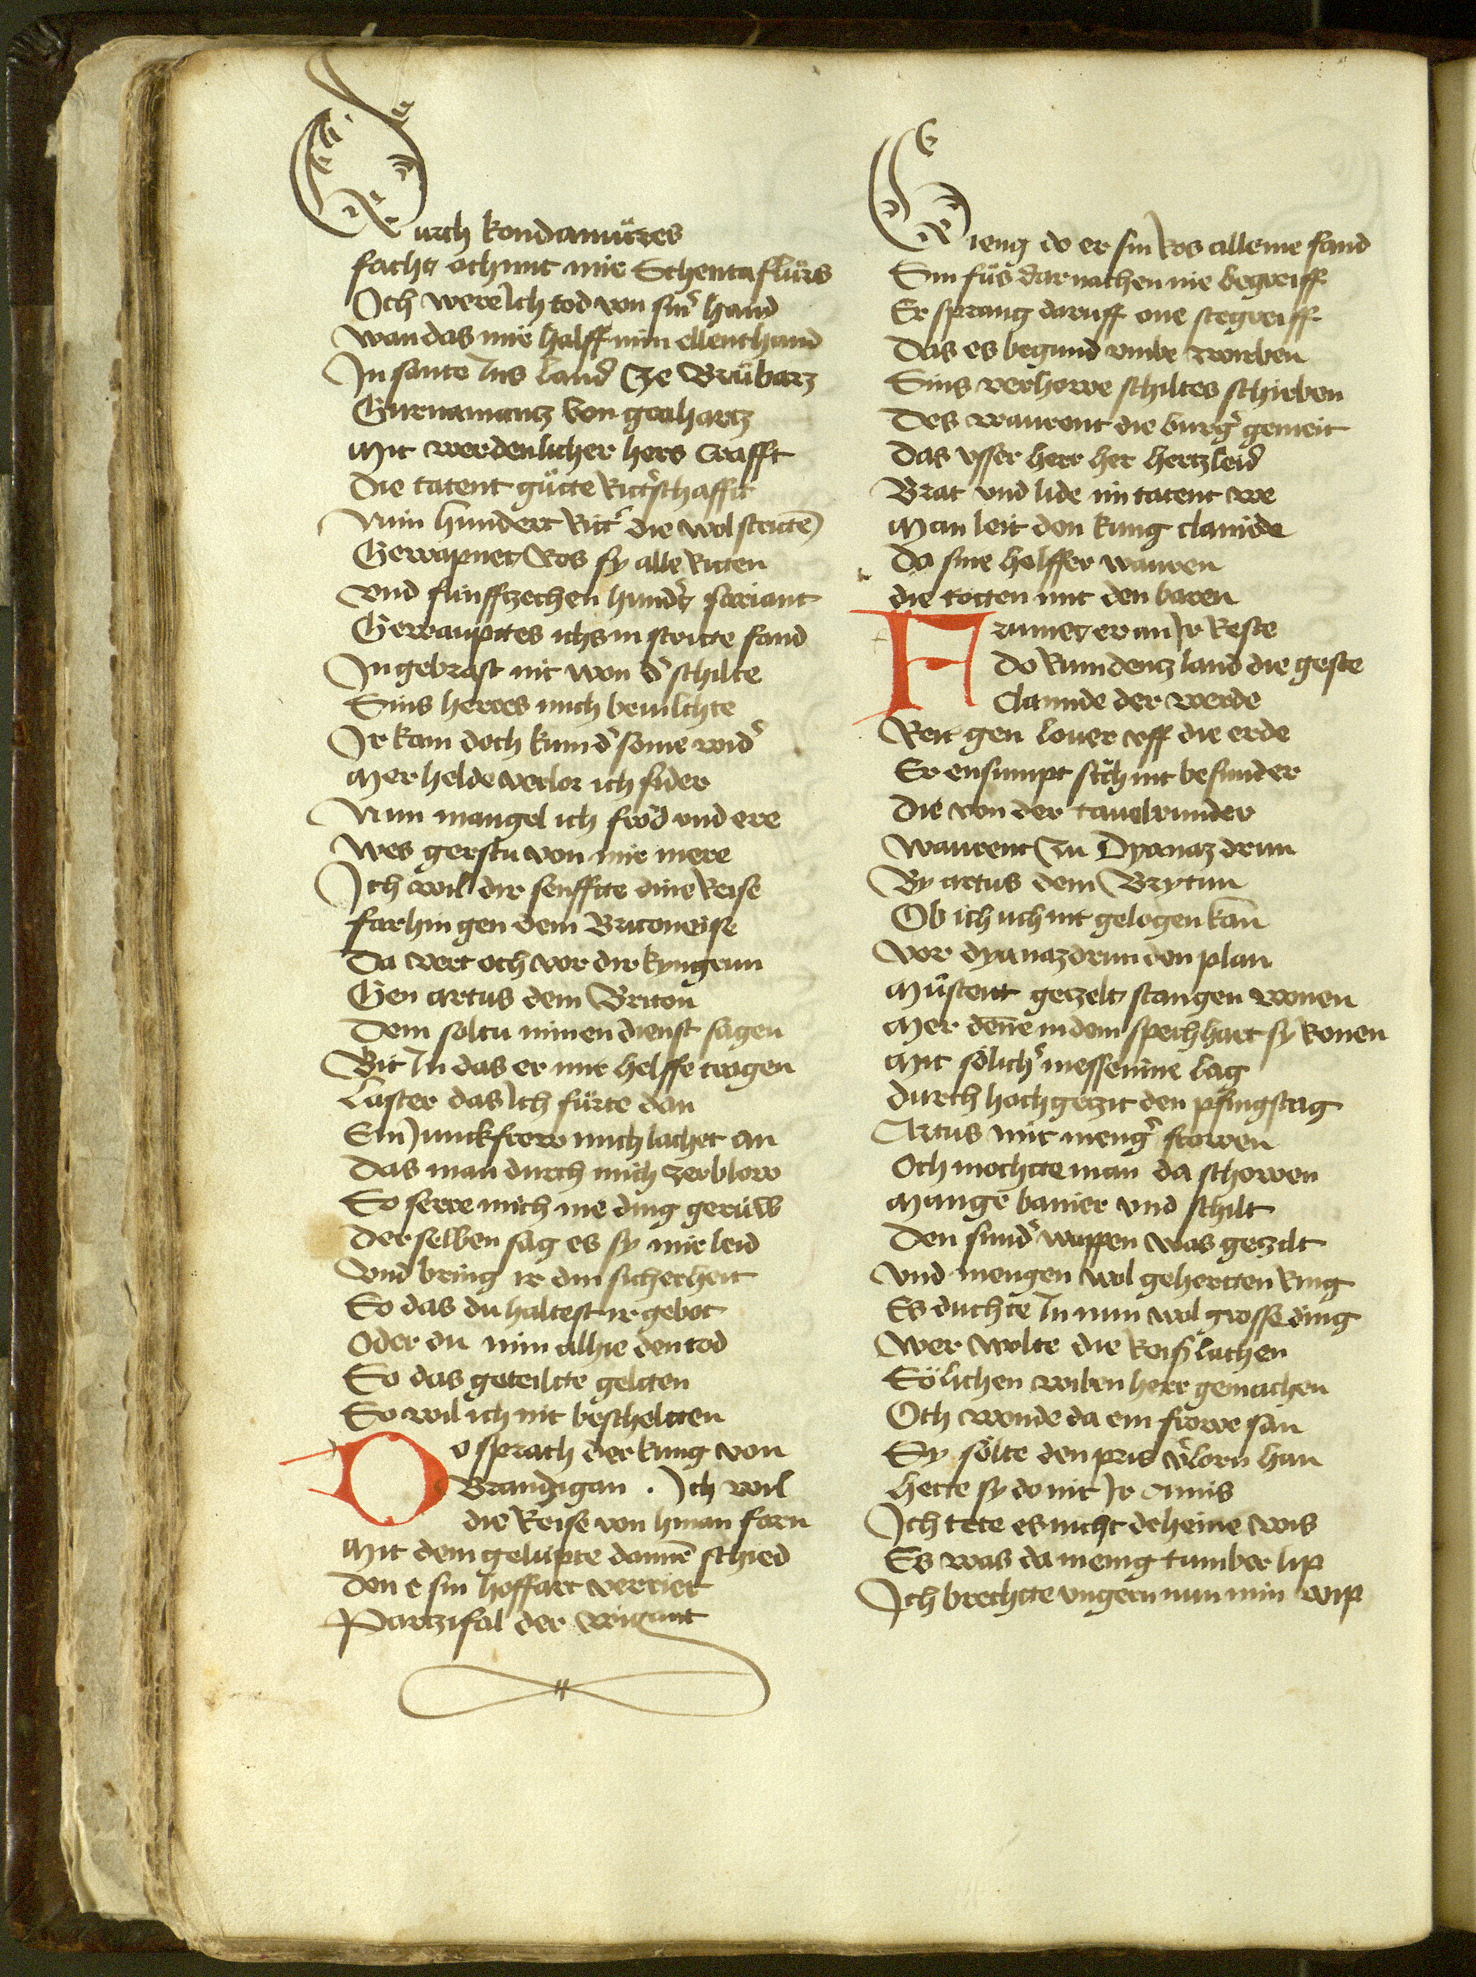 Durch kondamürees
facht och mit mir Schentaflürs
Ich were Ich tod von sinr hand
wan das mir halff min ellenthand
In sante Ins land Ze Brübarz
Gurnamantz von grahartz
Mit werdenlicher hers crafft
Die tatent gütte Rittrschafft
Nün hundert Rittr die wol strittē
Gewapnet Ros sy alle Ritten
Vnd fünffzechen hundrt sariant
Gewauptes ichs in stritte fand
In gebrast nit won dr schilte
Sins herres mich beuilchte
Ir kam doch kum dr some widr
Mer helde verlor ich sider
Nun mangel ich fröd vnd ere
Wes gerstu von mir mere
Ich wil dir senfftte dine Reise
far hin gen dem Britoneise
Da vert och vor dir kyngrun
Gen artus dem Briton
Dem soltu minen dienst sagen
Bit In das er mir helffe tragen
Laster das Ich fürte dan
Ein Junckfrow mich lachet an
Das man durch mich zerblow
So serre mich nie ding gerüw
Der selben sag es sy mir leid
Vnd bring ir din sicherheit
So das du haltest ir gebot
Oder du nim alhie den tod
So das geteiltte geltten
So wil ich nit bescheltten
Do sprach der kung von
Brandigan . Ich wil
die Reise von hinan farn
Mit dem gelüpte dannē schied
Den e sin hoffart verriet
Partzifal der wigant
Gieng do er sin Ros alleine fand
Sin füs dar nachen nie begreiff
Er sprang daruff one stegreiff
Das es begund vmbe wirben
Sins verhowe schiltes schirben
Des waurent die burgr gemeit
Das vsser herr her hertzleid
Brat vnd lide im tatent we
Man leit den kung clamide
Da sine helffer wauren
die totten mit den baren
Frumet er an Ir Reste
Do Rumdentz land die geste
Clamide der werde
Reit gen louer vff die erde
Er ensumpt sich nit besunder
Die von der tauelrunder
Waurent Zu Dyanazdrun
By artus dem Brytun
Ob ich uch nit gelogen kan
Vor dyanazdrun den plan
Müstent gezelt stangen wonen
Mer denē in dem spechhart sy Ronen
Mit sölichr messenine lag
Durch hochgezit den pfingstag
Artus mit mengr frowen
Och mochtte man da schowen
Mangē banier vnd schilt
Den sundr wappen was gezilt
Vnd mengen wol gehertten Ring
Es duchte In nun wol grosse ding
Wer wolte die Reislachen
Sölichen wiben herr gemachen
Och wonde da ein frowe san
Sy sölte den pris vrlorn han
Hette sy do nit Ir Amis
Ich tete es nicht deheine wis
Es was da menig tumber lip
Ich brechtte vngern nun min wip